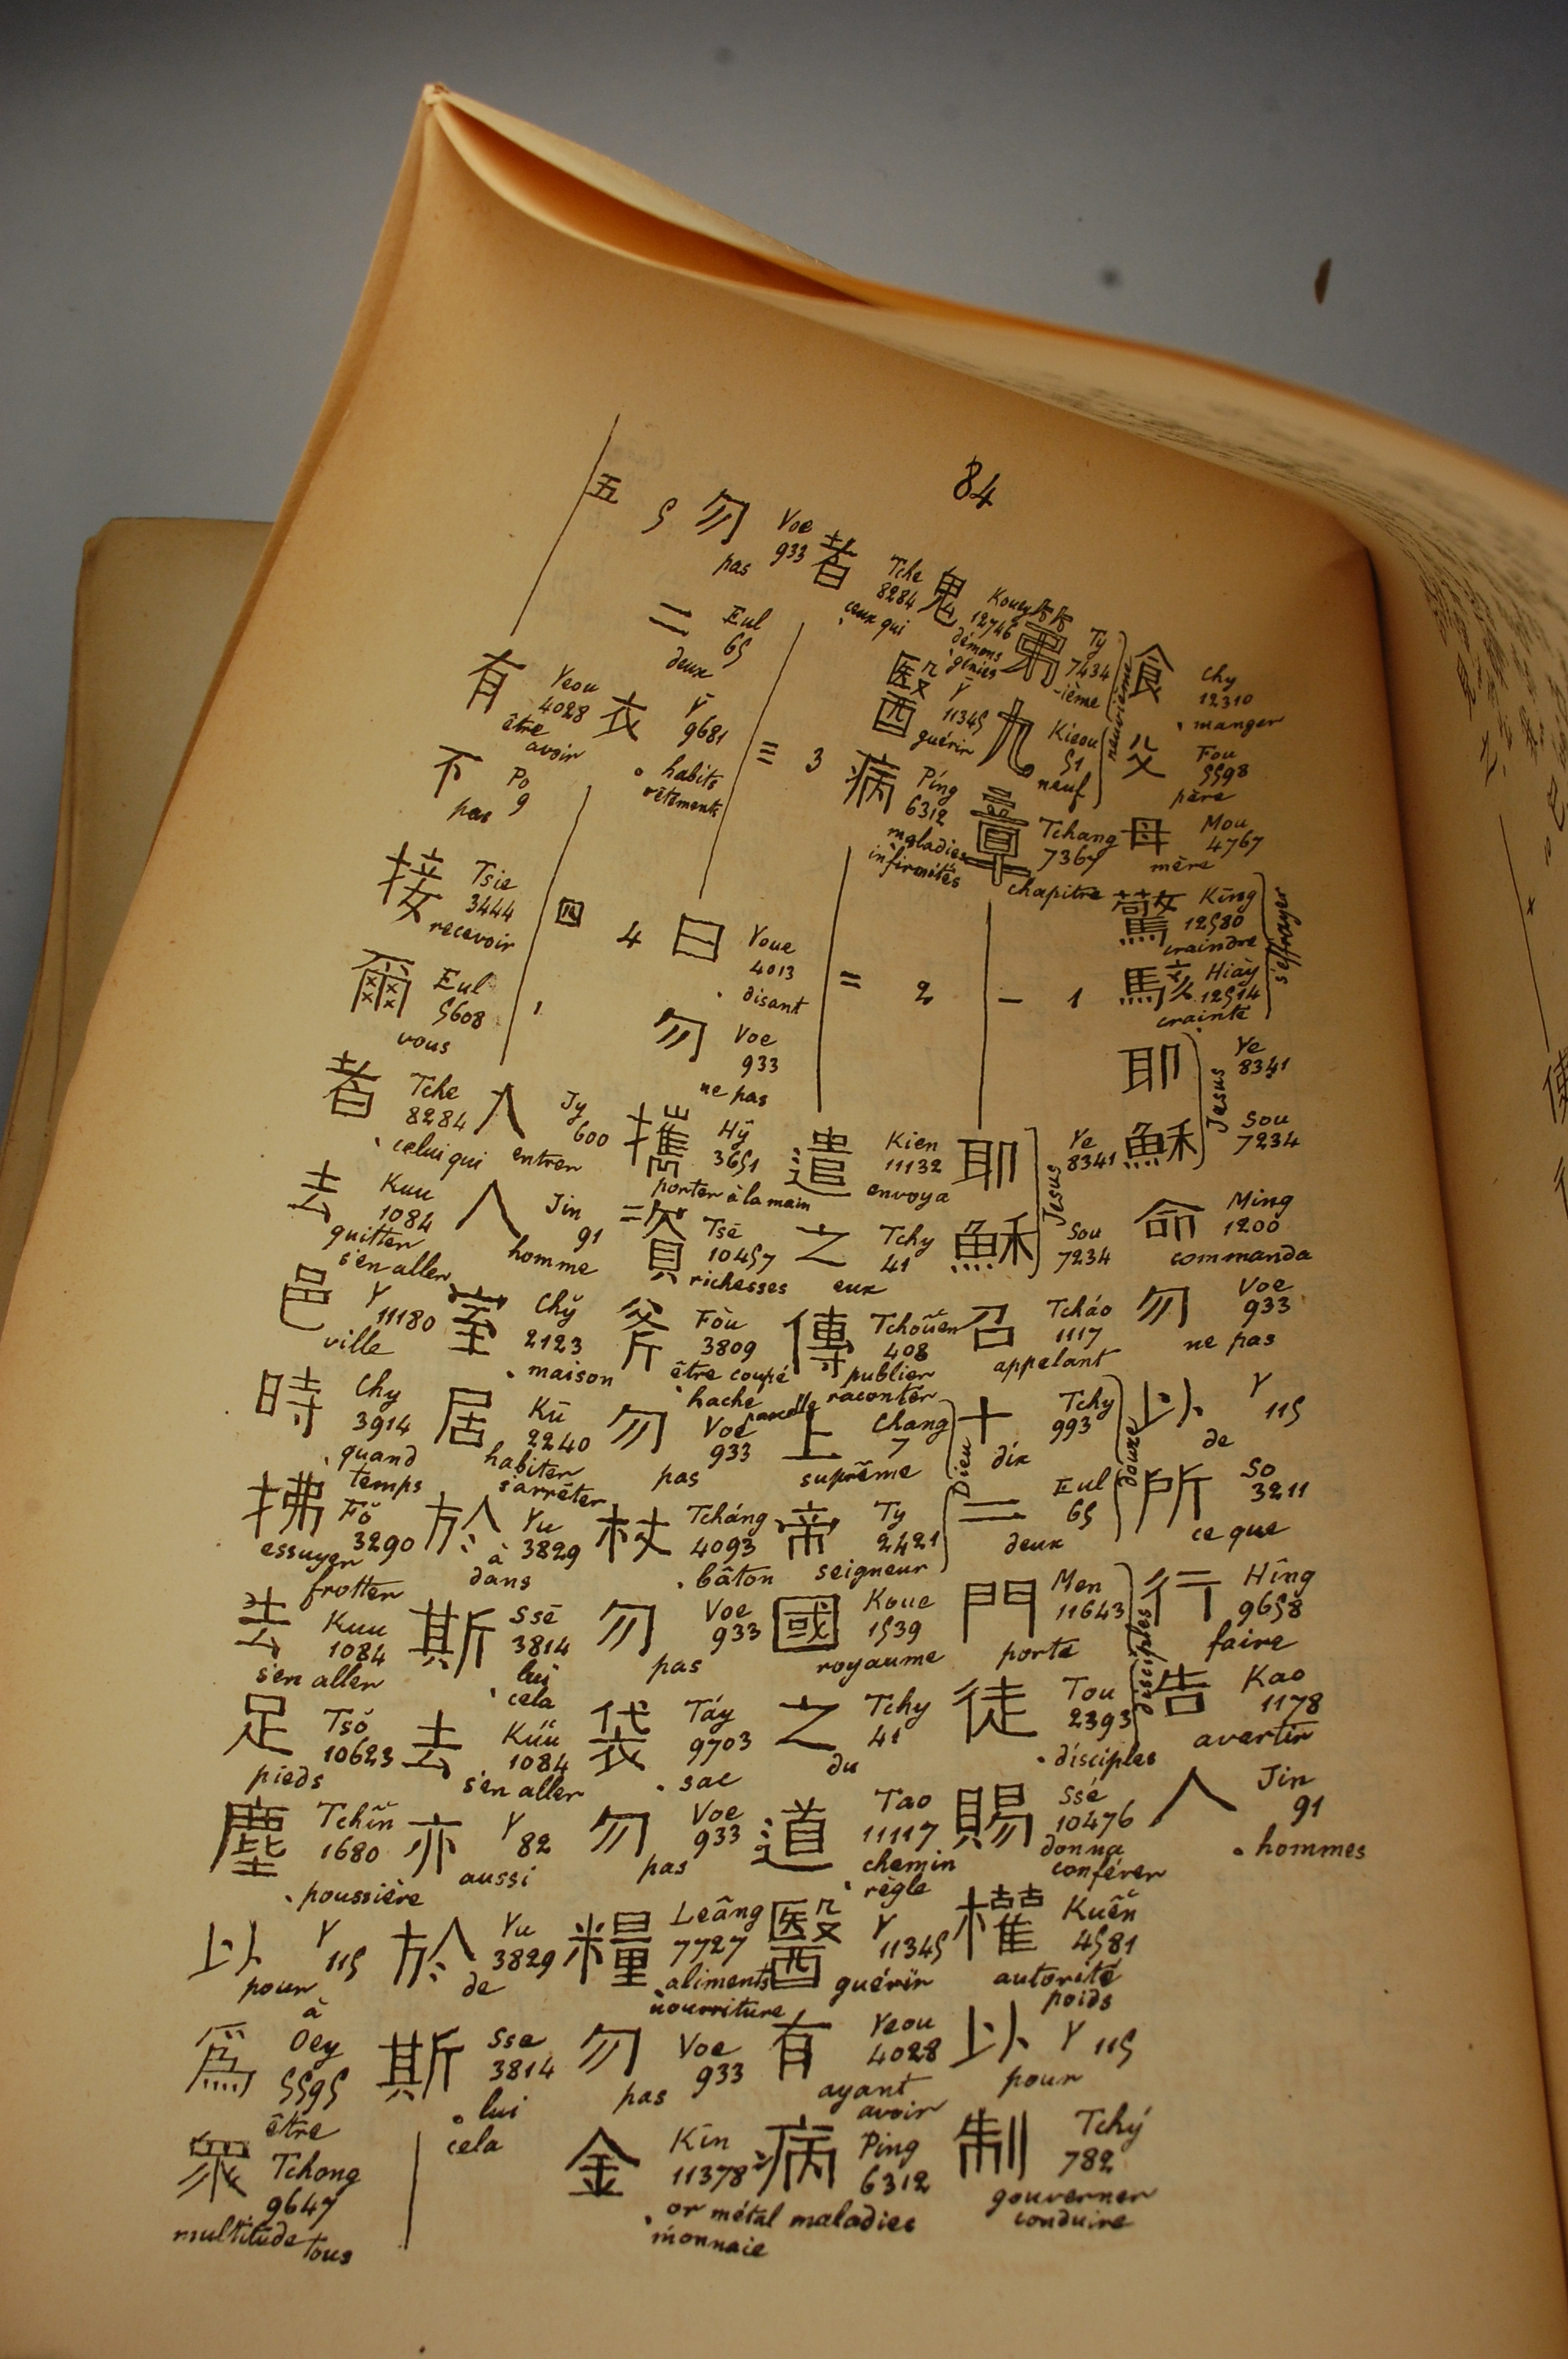 84
食 Chy 12310 manger
父 Fou 5598 père
母 Mou 4767 mère
驚 King 12580 craindre
駭 Hiáy 12514 crainte
s'effrayer
耶 Ye 8341
穌 Sou 7234
Jesus
命 Ming 1200 commanda
勿 Voe 933 ne pas
以 Y 115 de
所 So 3211 ce que
行 Hîng 9658 faire
告 Kao 1178 avertir
人 Jin 91 hommes
第 Ty 7434 -ième
九 Kieou 51 neuf
neuvième
章 Tchang 7367 chapitre
一 1
耶 Ye 8341
穌 Sou 7234
Jesus
召 Tcháo 1117 appelant
十 Tchy 993 dix
二 Eul 65 deux
douze
門 Men 11643 porte
徒 Tou 2393 disciples
disciples
賜 Ssé 10476 donna conférer
權 Kuên 4581 autorité poids
以 Y 115 pour
制 Tchý 782 gouverner conduire
鬼 Kouey 12746 démons génies
醫 Y 11345 guérir
病 Píng 6312 maladies infirmités
二 2
遣 Kien 11132 envoya
之 Tchy 41 eux
傳 Tchoüen 408 publier raconter
上 Chang 7 suprême
帝 Ty 2421 seigneur
Dieu
國 Koue 1539 royaume
之 Tchy 41 du
道 Tao 11117 chemin règle
醫 Y 11345 guérir
有 Yeou 4028 ayant avoir
病 Ping 6312 maladies
者 Tche 8284 ceux qui
三 3
曰 Youe 4013 disant
勿 Voe 933 ne pas
攜 Hȳ 3651 porter à la main
資 Tsē 10457 richesses
斧 Fòu 3809 être coupé hache parcelle
勿 Voe 933 pas
杖 Tcháng 4093 bâton
勿 Voe 933 pas
袋 Táy 9703 sac
勿 Voe 933 pas
糧 Leâng 7727 aliments nourriture
勿 Voe 933 pas
金 Kin 11378 or métal monnaie
勿 Voe 933 pas
二 Eul 65 deux
衣 Ȳ 9681 habits vêtements
四 4
入 Jy 600 entrer
人 Jin 91 homme
室 Chy 2123 maison
居 Kū 2240 habiter s'arrêter
於 Yu 3829 à dans
斯 Ssē 3814 lui cela
去 Kúü 1084 s'en aller
亦 Y 82 aussi
於 Yu 3829 de
斯 Sse 3814 lui cela
五 5
有 Yeou 4028 être avoir
不 Po 9 pas
接 Tsie 3444 recevoir
爾 Eul 5608 vous
者 Tche 8284 celui qui
去 Kuu 1084 quitter s'en aller
邑 Y 11180 ville
時 Chy 3914 quand temps
拂 Fŏ 3290 essuyer frotter
去 Kuu 1084 s'en aller
足 Tsŏ 10623 pieds
塵 Tchîn 1680 poussière
以 Y 115 pour à
爲 Oey 5595 être
眾 Tchong 9647 multitude tous